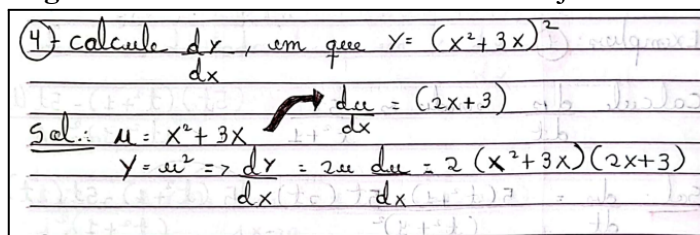 4)- calcule dy/dx, em que Y = (x²+3x)²
du/dx = (2x+3)
Sol.: u = x²+3x
Y = u² => dy/dx = 2u du/dx = 2 (x²+3x)(2x+3)